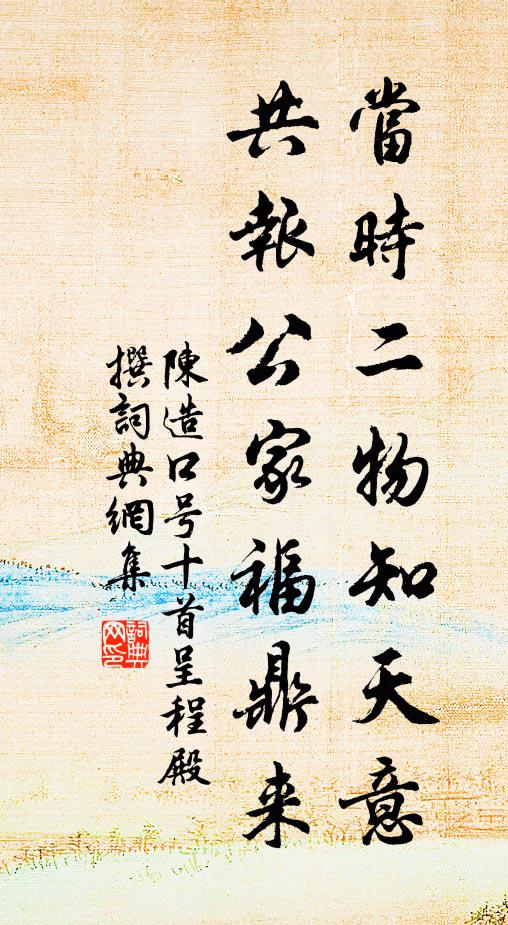 當時二物知天意
共報公家福鼎来
陳造口号十首呈程殿
撰詞典網集
詞典网印